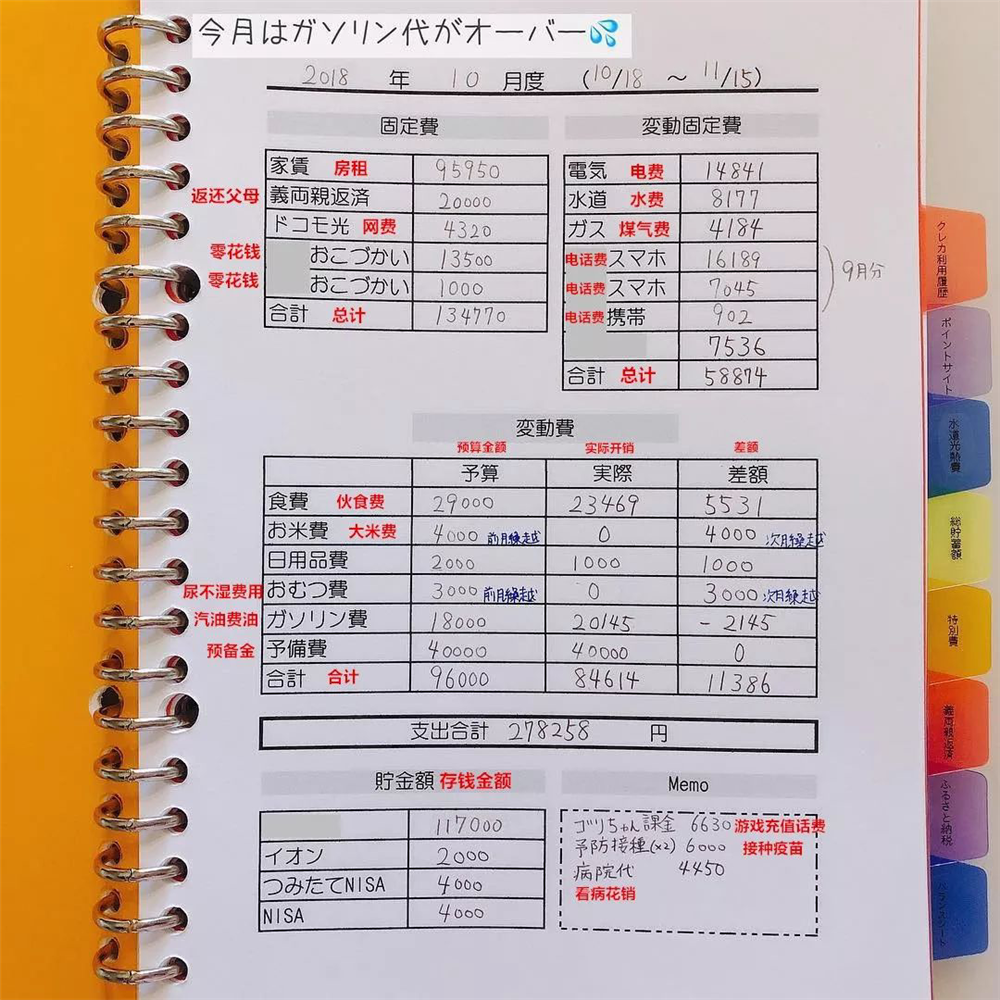 今月はガソリン代がオーバー💦
2018 年 10 月度 (10/18 ～ 11/15)
固定費
家賃 房租 95950
返还父母 義両親返済 20000
ドコモ光 网费 4320
零花钱 おこづかい 13500
零花钱 おこづかい 1000
合計 总计 134770
変動固定費
電気 电费 14841
水道 水费 8177
ガス 煤气费 4184
电话费 スマホ 16189
电话费 スマホ 7045
电话费 携帯 902
9月分
7536
合計 总计 58874
変動費
预算金额 实际开销 差额
予算 実際 差額
食費 伙食费 29000 23469 5531
お米費 大米费 4000 前月繰越 0 4000 次月繰越
日用品費 2000 1000 1000
尿不湿费用 おむつ費 3000 前月繰越 0 3000 次月繰越
汽油费油 ガソリン費 18000 20145 -2145
预备金 予備費 40000 40000 0
合計 合计 96000 84614 11386
支出合計 278258 円
貯金額 存钱金额
117000
イオン 2000
つみたてNISA 4000
NISA 4000
Memo
ゴリちゃん課金 6630 游戏充值话费
予防接種(×2) 6000 接种疫苗
病院代 4450
看病花销
クレカ利用履歴
ポイントサイト
水道光熱費
総貯蓄額
特別費
義両親返済
ふるさと納税
バランスシート